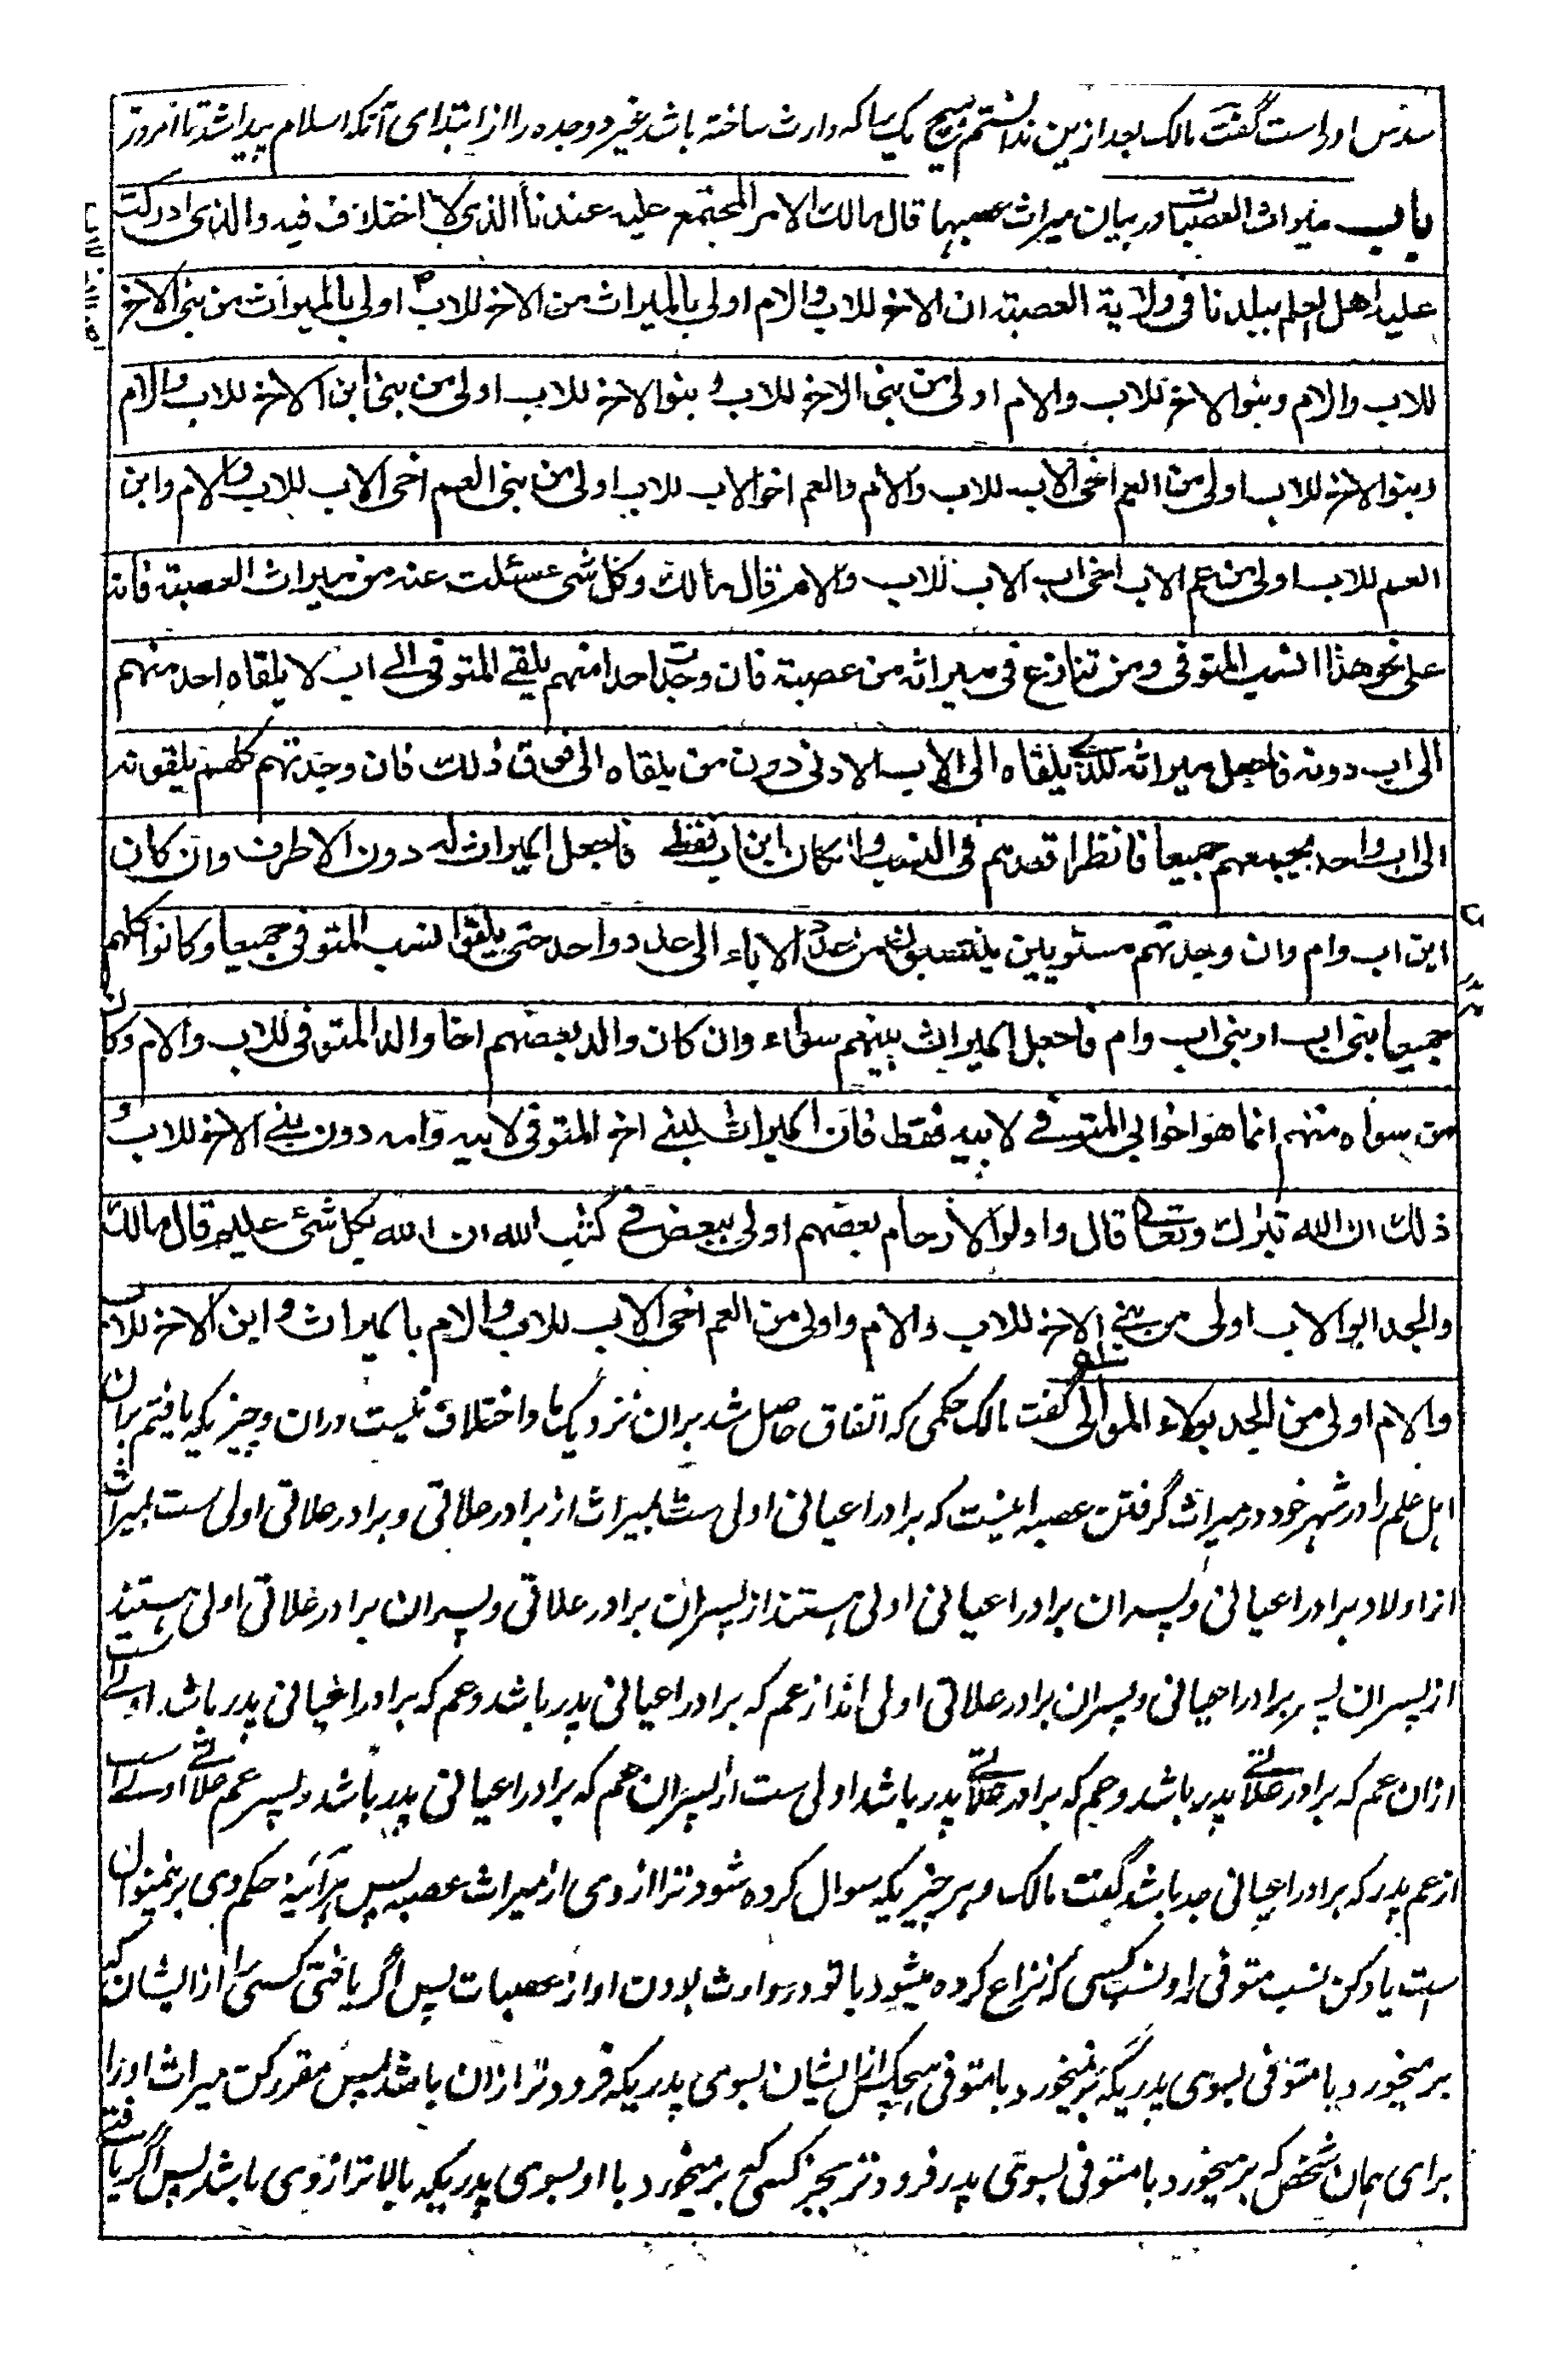 سدس اوراست گفت مالک بعد ازین ندانستم هیچ یک را که وارث ساخته باشد غیر دو جده را از ابتدای آنکه اسلام پیدا شد تا امروز
باب میراث العصبات در بیان میراث عصبها قال مالک الامر المجتمع علیه عندنا الذی لا اختلاف فیه والذی ادرکت
علیه اهل العلم ببلدنا فی ولایة العصبة ان الاخ للاب والام اولی بالمیراث من الاخ للاب اولی بالمیراث من بنی الاخ
للاب والام وبنو الاخ للاب والام اولی من بنی الاخ للاب و بنو الاخ للاب اولی من بنی ابن الاخ للاب والام
وبنو الاخ للاب اولی من العم اخی الاب للاب والام والعم اخو الاب للاب اولی من بنی العم اخی الاب للاب والام وابن
العم للاب اولی من عم الاب اخی اب الاب للاب والام قال مالک وکل شیء سئلت عنه من میراث العصبة فانه
علی نحو هذا انسب المتوفی ومن تنازع فی میراثه من عصبة فان وجدت احدا منهم یلقی المتوفی الی اب لا یلقاه احد منهم
الی اب دونه فاجعل میراثه للذی یلقاه الی الاب الادنی دون من یلقاه الی فوق ذلک فان وجدتهم کلهم یلقونه
الی اب واحد یجمعهم جمیعا فانظر اقعدهم فی النسب وان کان ابن اب فقط فاجعل المیراث له دون الاطرف وان کان
ابن اب وام وان وجدتهم مستویین ینتسبون من عدد الاباء الی عدد واحد حتی یلقوا نسب المتوفی جمیعا وکانوا کلهم
جمیعا بنی اب او بنی اب وام فاجعل المیراث بینهم سواء وان کان والد بعضهم اخا والد المتوفی للاب والام وکان
من سواه منهم انما هو اخو ابی المتوفی لابیه فقط فان المیراث لبنی اخ المتوفی لابیه وامه دون بنی الاخ للاب و
ذلک ان الله تبارک وتعالی قال واولوا الارحام بعضهم اولی ببعض فی کتب الله ان الله بکل شئ علیم قال مالک
والجد ابو الاب اولی من بنی الاخ للاب والام واولی من العم اخی الاب للاب والام بالمیراث و ابن الاخ للاب
والام اولی من الجد بولاء الموالی گفت مالک حکمی که اتفاق حاصل شد بران نزدیک ما و اختلاف نیست دران و چیزیکه یافتم بران
اهل علم را در شهر خود در میراث گرفتن عصبه اینست که برادر اعیانی اولی ست بمیراث از برادر علاتی و برادر علاتی اولی ست بمیراث
از اولاد برادر اعیانی و پسران برادر اعیانی اولی هستند از پسران برادر علاتی و پسران برادر علاتی اولی هستند
از پسران پسر برادر اعیانی و پسران برادر علاتی اولی اند از عم که برادر اعیانی پدر باشد و عم که برادر اعیانی پدر باشد اولی ست
ازان عم که برادر علاتی پدر باشد و عم که برادر علاتی پدر باشد اولی ست از پسران عم که برادر اعیانی پدر باشد و پسر عم علاتی اولی است
از عم پدر که برادر اعیانی جد باشد گفت مالک و هر چیزیکه سوال کرده شود ترا از وی از میراث عصبه پس هرآئینه حکم وی برهمنوان
ست یاد کن نسب متوفی را و نسب کسی که نزاع کرده میشود با تو در وارث بودن او از عصبات پس اگر یافتی کسی را از ایشان که
برمیخورد با متوفی بسوی پدریکه برنمیخورد با متوفی هیچکس از ایشان بسوی پدریکه فرودتر ازان باشد پس مقرر کن میراث اورا
برای همان شخص که برمیخورد با متوفی بسوی پدر فرودتر بجز کسی که برمیخورد با او بسوی پدریکه بالاتر از وی باشد پس اگر یافتی